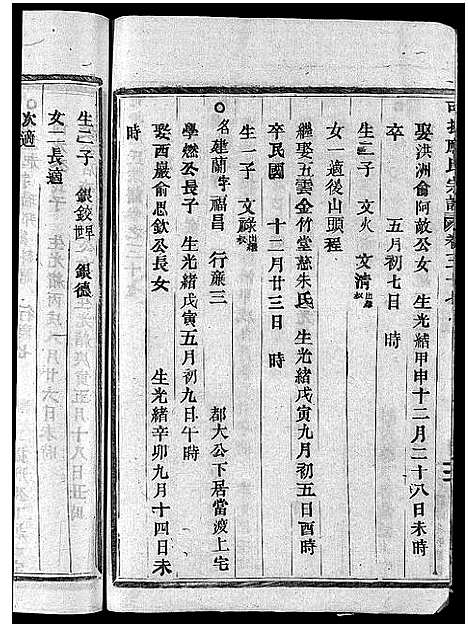 娶洪洲俞阿敵公女　生光緒甲申十二月二十八日未時
卒　　五月初七日　時
生二子　文火　文清出繼
女一適後山頭程
繼娶五雲金竹堂慈朱氏　生光緒戊寅九月初五日酉時
卒民國　十二月廿三日　時
生一子　文祿
名建蘭字福昌　行康三　都大公下居當渡上宅
學燃公長子　生光緒戊寅五月初九日午時
娶西嚴俞思欽公長女　生光緒辛卯九月十四日未
時
生二子　銀鉸　銀德
女二長適
次適